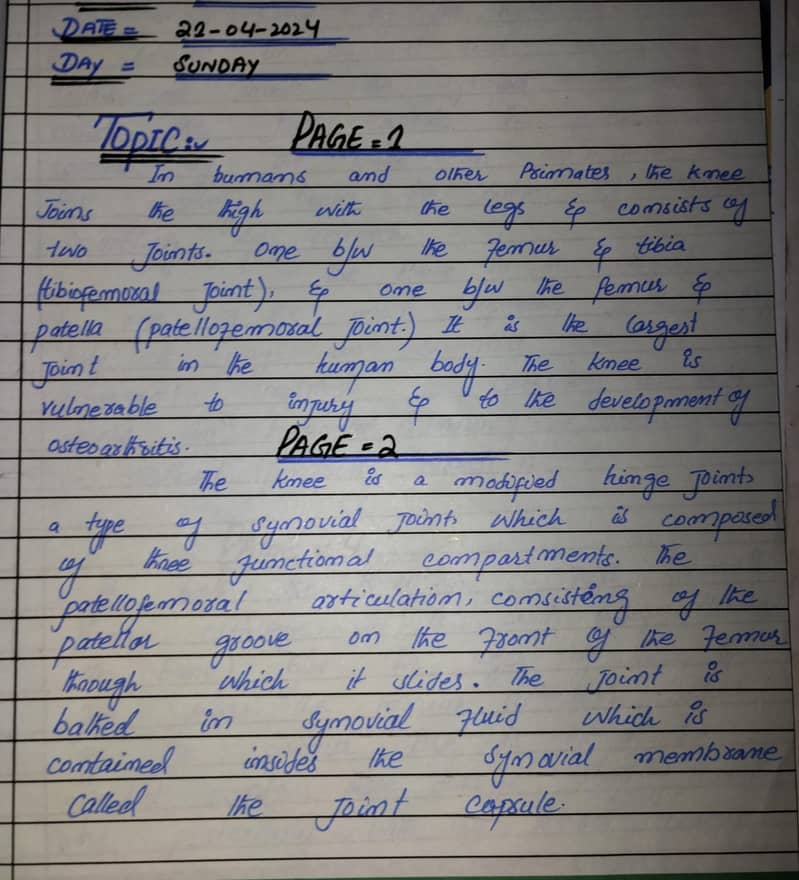 DATE = 22-04-2024
DAY = SUNDAY
TOPIC:- PAGE = 1
In humans and other Primates, the knee
Joins the thigh with the legs & consists of
two Joints. One b/w the Femur & tibia
(tibiofemoral Joint), & one b/w the femur &
patella (patellofemoral Joint.) It is the largest
Joint in the human body. The knee is
vulnerable to injury & to the development of
osteoarthritis. PAGE = 2
The knee is a modified hinge Joint,
a type of synovial Joint, which is composed
of three functional compartments. The
patellofemoral articulation, consisting of the
patellar groove on the Front of the Femur
through which it slides. The Joint is
bathed in Synovial Fluid which is
contained insides the Synovial membrane
Called the Joint capsule.